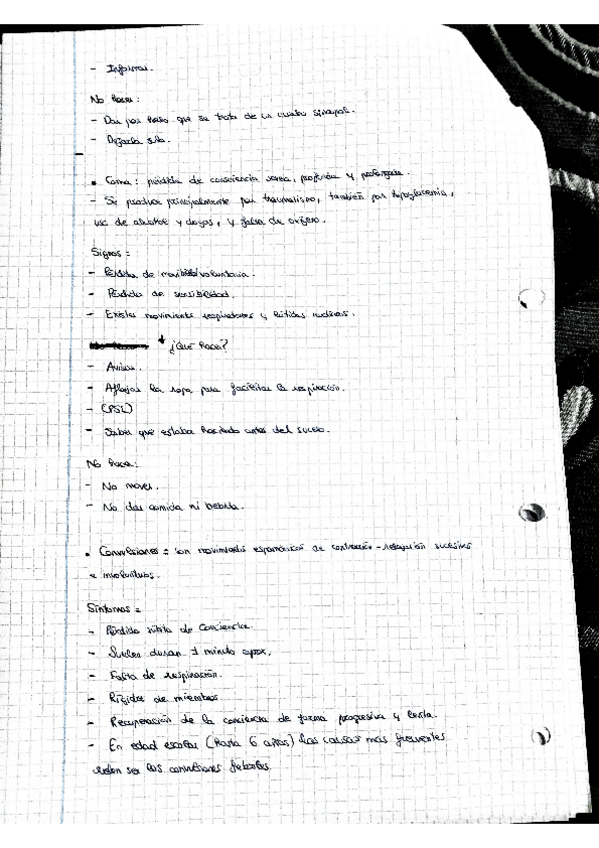 - Informar.
No hacer:
- Dar por hecho que se trata de un cuadro sincopal.
- Dejarla sola.
• Coma: pérdida de consciencia severa, profunda y prolongada.
- Se produce principalmente por traumatismo, también por hipoglucemia,
uso de alcohol y drogas, y falta de oxígeno.
Signos:
- Pérdida de movilidad voluntaria.
- Pérdida de sensibilidad.
- Existen movimientos respiratorios y latidos cardiacos.
↓ ¿Qué hacer?
- Avisar.
- Aflojar la ropa para facilitar la respiración.
- (PSL)
- Saber que estaba haciendo antes del suceso.
No hacer:
- No mover.
- No dar comida ni bebida.
• Convulsiones = son movimientos espasmódicos de contracción-relajación sucesivos
e involuntarios.
Síntomas =
- Pérdida súbita de conciencia.
- Suelen duran 1 minuto aprox.
- Falta de respiración.
- Rigidez de miembros
- Recuperación de la conciencia de forma progresiva y lenta.
- En edad escolar (hasta 6 años) las causas más frecuentes
suelen ser las convulsiones febriles.